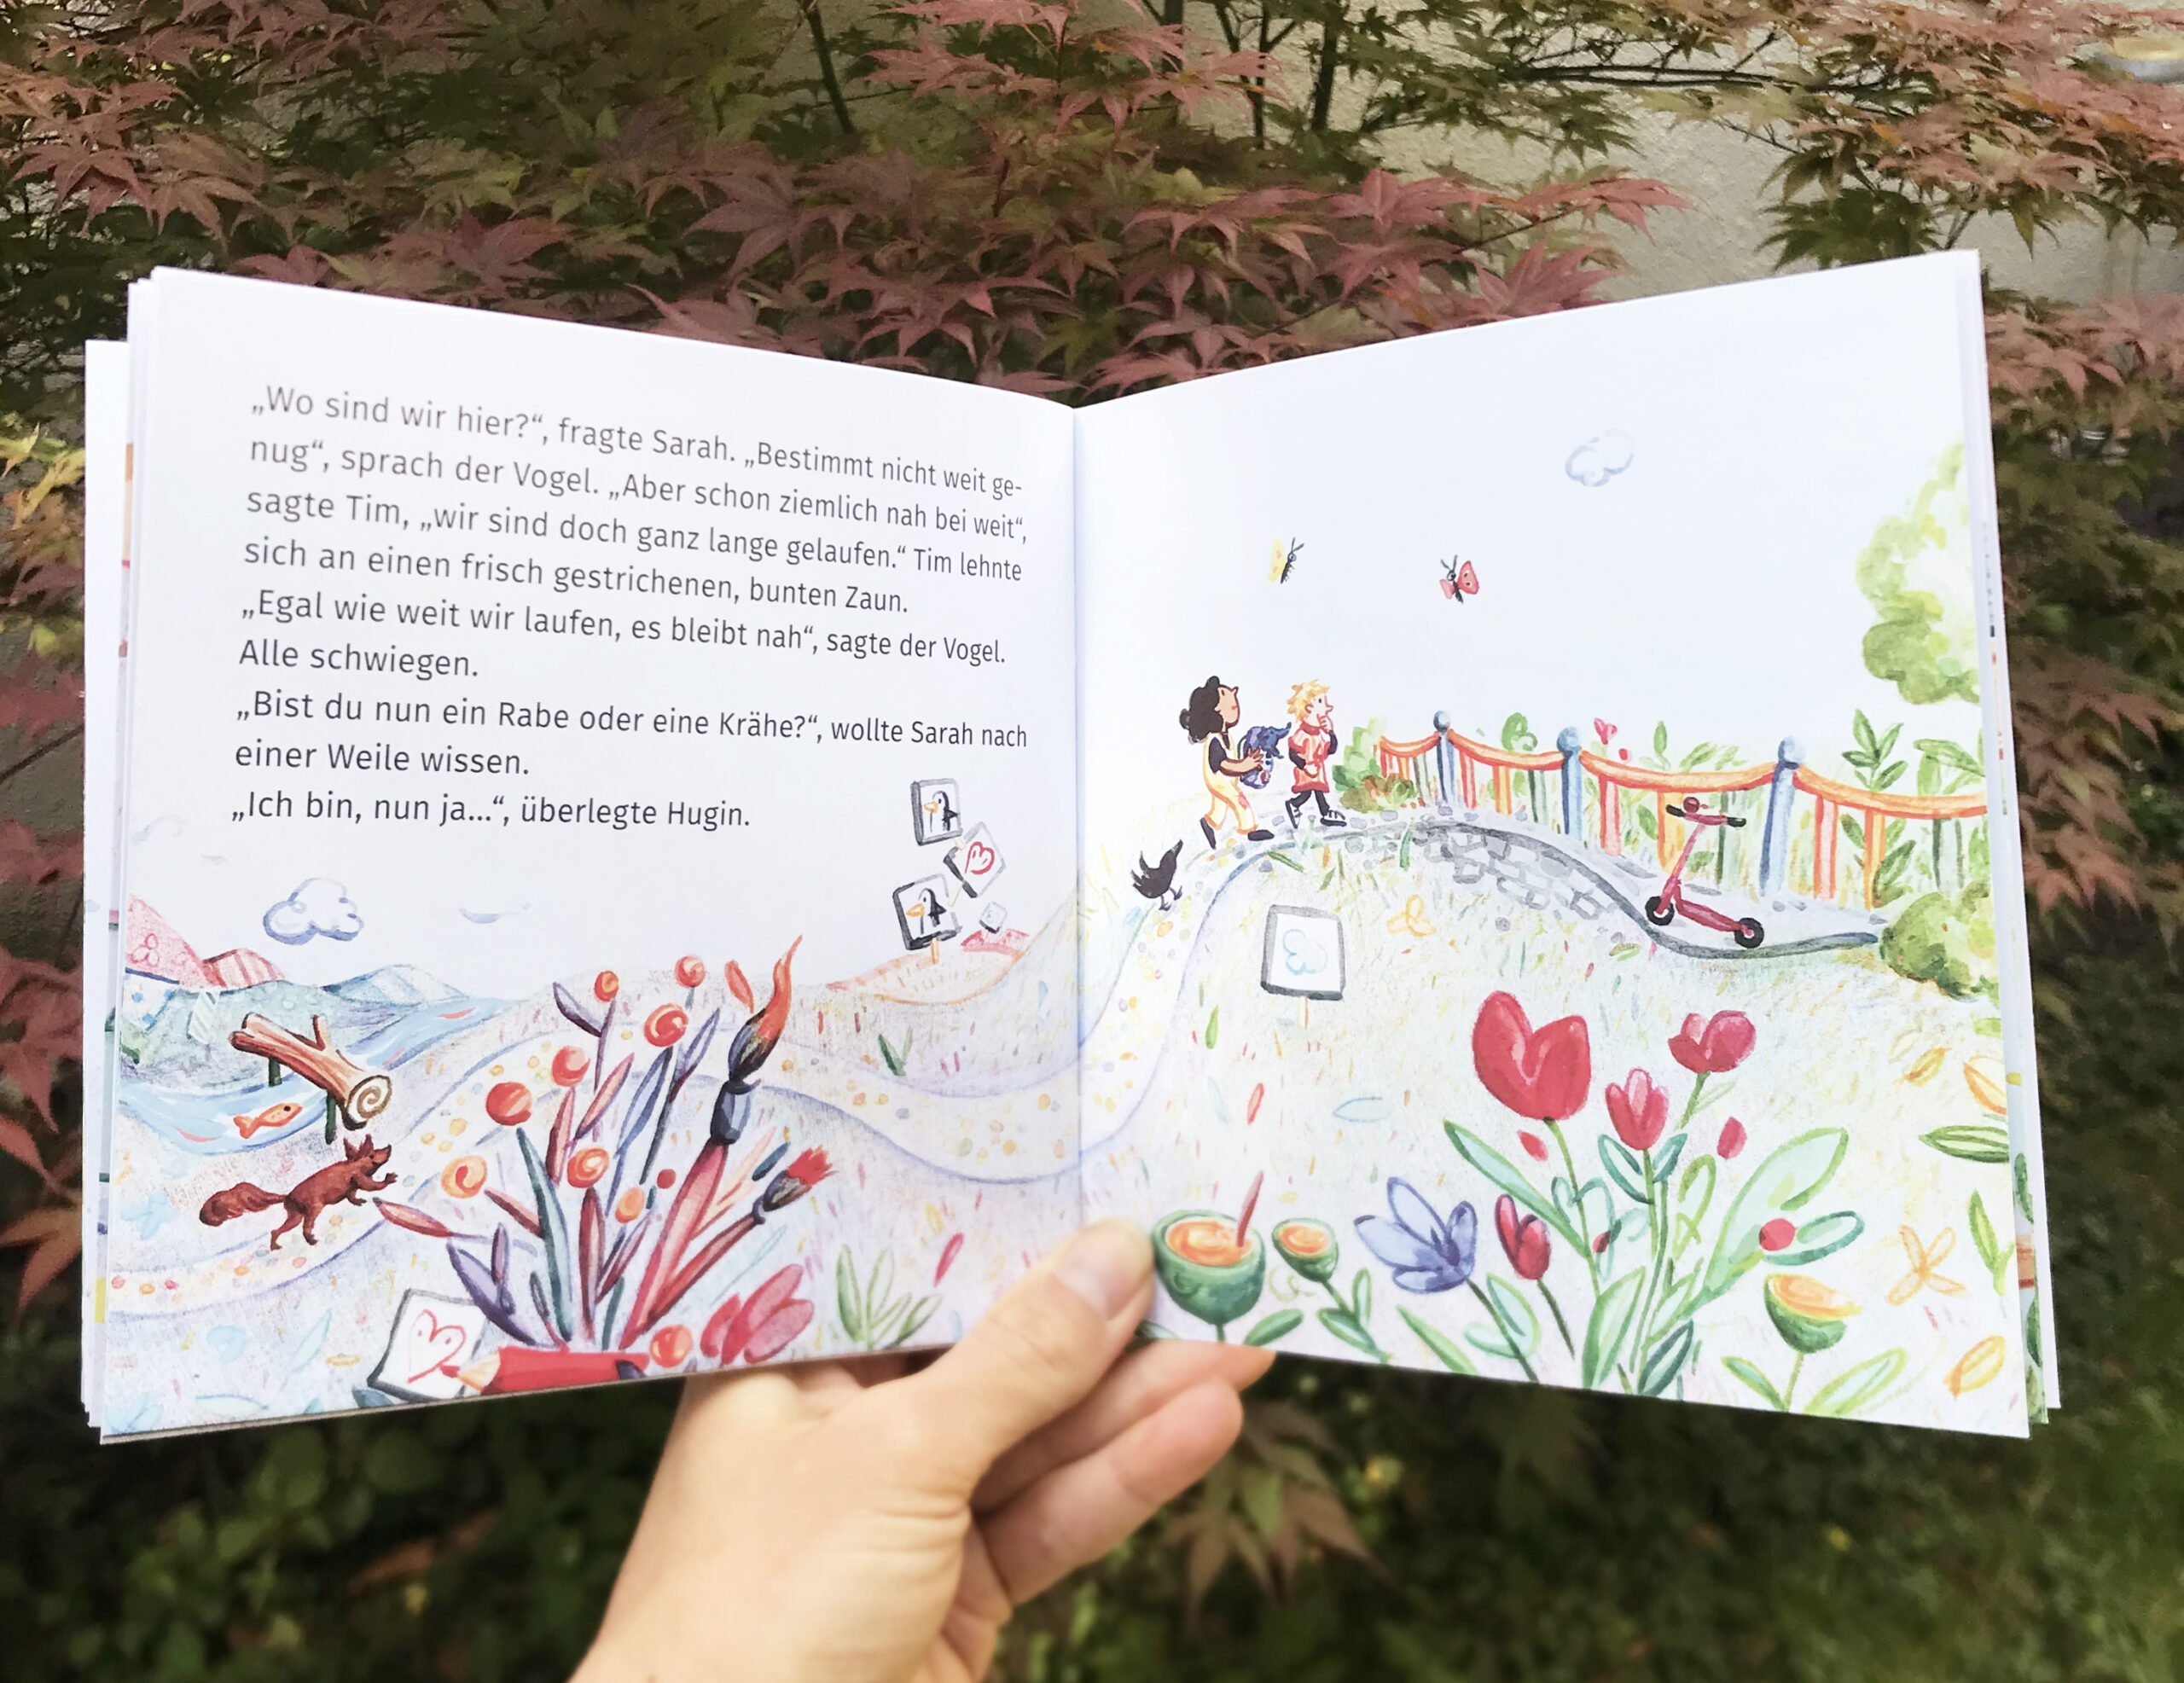 „Wo sind wir hier?“, fragte Sarah. „Bestimmt nicht weit ge-
nug“, sprach der Vogel. „Aber schon ziemlich nah bei weit“,
sagte Tim, „wir sind doch ganz lange gelaufen.“ Tim lehnte
sich an einen frisch gestrichenen, bunten Zaun.
„Egal wie weit wir laufen, es bleibt nah“, sagte der Vogel.
Alle schwiegen.
„Bist du nun ein Rabe oder eine Krähe?“, wollte Sarah nach
einer Weile wissen.
„Ich bin, nun ja...“, überlegte Hugin.